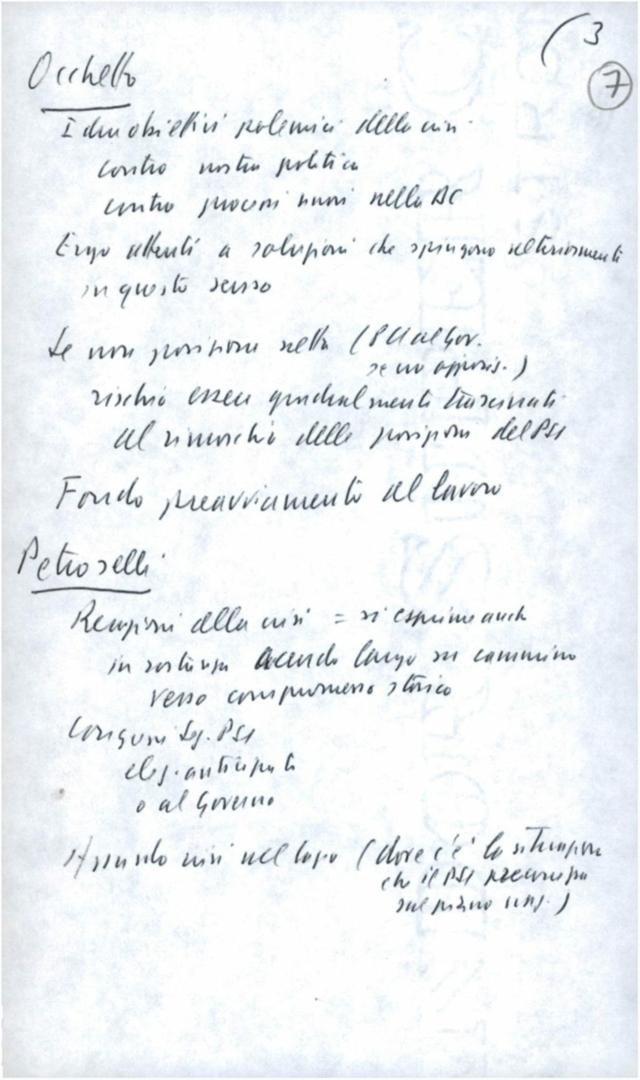 ( 3
7
Occhetto
I due obiettivi polemici della crisi
contro nostra politica
contro processi nuovi nella DC
Ergo attenti a soluzioni che spingono ulteriormente
in questo senso
Se non posizione netta (PCI al Gov.
se no opposiz.)
rischio essere gradualmente trascinati
al rimorchio delle posizioni del PSI
Fondo preavviamento al lavoro
Petroselli
Reazioni della crisi = si esprime anche
in sostanza lungo su cammino
verso compromesso storico
Seg. PSI
elez. anticipate
o al Governo
crisi nel Lazio (dove c'è la situazione
che il PSI preoccupa
sul piano)